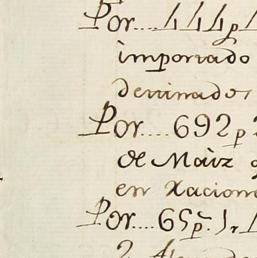 Por.... 444p
importado
derivados
Por.... 692p
de Maiz
en Racion
Por.... 65p.
2